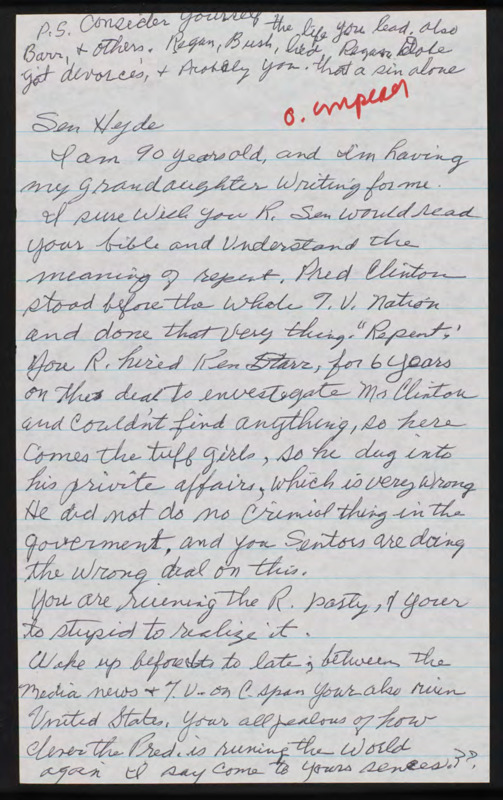 P.S. Consider yourself the life you lead. also
Barr, + others. Regan, Bush, lied. Regan Dole
got divorces, + Probely you. that a sin alone
o. impeach
Sen Hyde
I am 90 years old, and I'm having
my Grandaughter Writing for me.
I sure Wish you R. Sen would read
your bible and Understand the
meaning of repent. Pred Clinton
stood before the Whole T.V. Nation
and done that Very thing. "Repent."
You R. hired Ken Starr, for 6 years
on this deal to envestegate Mr Clinton
and Could'nt find anything, so here
Comes the tuff girls, so he dug into
his privite affairs, Which is very Wrong
He did not do no Crimiol thing in the
goverment, and you Sentors are doing
the Wrong deal on this.
You are ruening the R. party, & your
to stupid to realize it.
Wake up before its to late; between the
Media news + T.V. on C span your also ruien
United States. Your all jealous of how
clever the Pred. is runing the World
again I say Come to yours senses.??